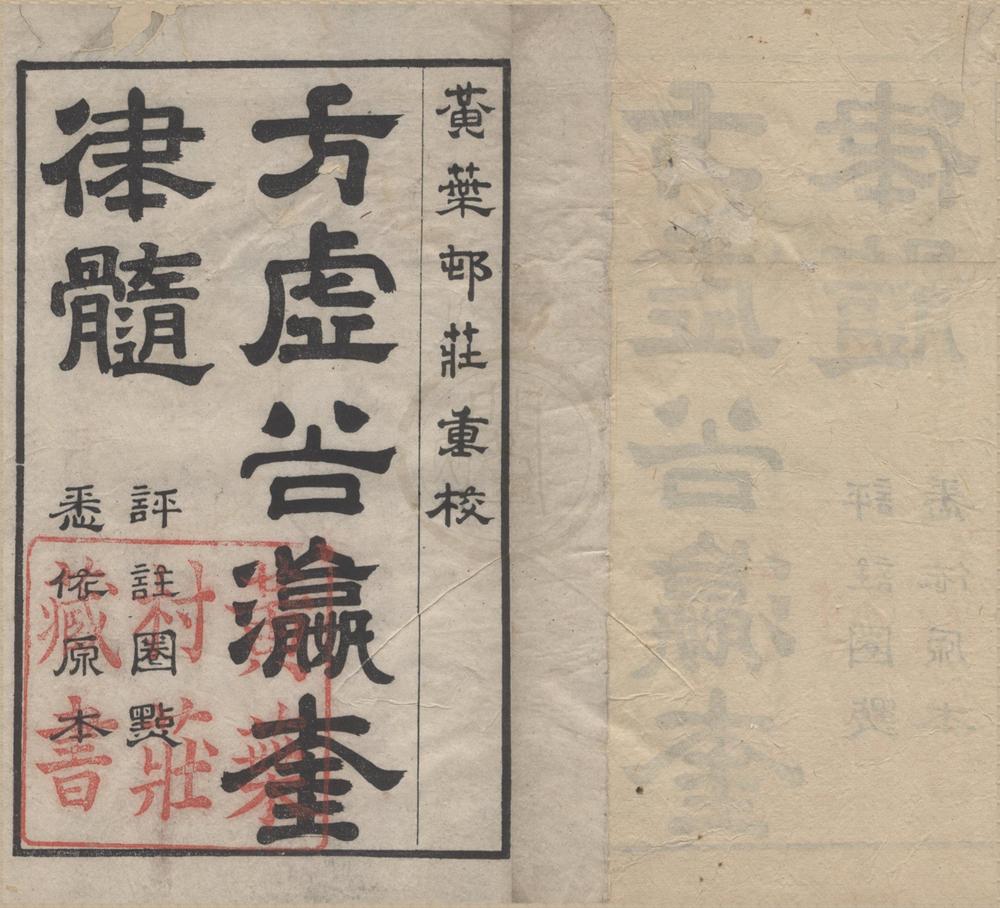 黃葉邨莊重校
方虛谷瀛奎
律髓
評註圈點
悉依原本
黃葉
村莊
藏書